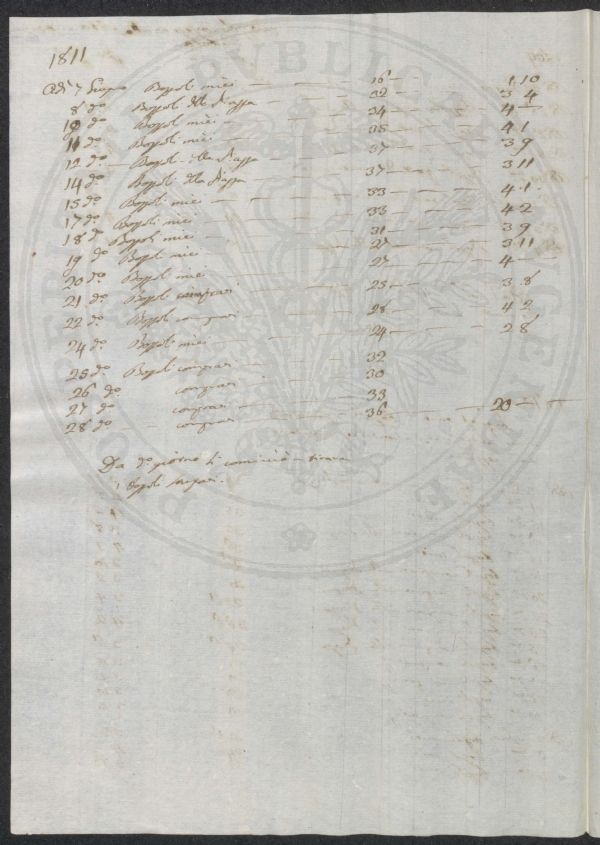 1811
Adì 7 Giugno Bozzoli miei 16 1.10
8 do Bozzoli della Piazza 32 3 4
10 do Bozzoli miei 34 4
11 do Bozzoli miei 35 4 1
12 do Bozzoli della Piazza 37 3 9
14 do Bozzoli della Piazza 37 3 11
15 do Bozzoli miei 33 4 1
17 do Bozzoli miei 33 4 2
18 do Bozzoli miei 31 3 9
19 do Bozzoli miei 27 3 11
20 do Bozzoli miei 27 4
21 do Bozzoli comprati 25 3 8
22 do Bozzoli comprati 28 4 2
24 do Bozzoli miei 24 2 8
25 do Bozzoli comprati 32
26 do comprati 30
27 do comprati 33
28 do comprati 36 20
Da do giorno si cominciò a tirare
i Bozzoli